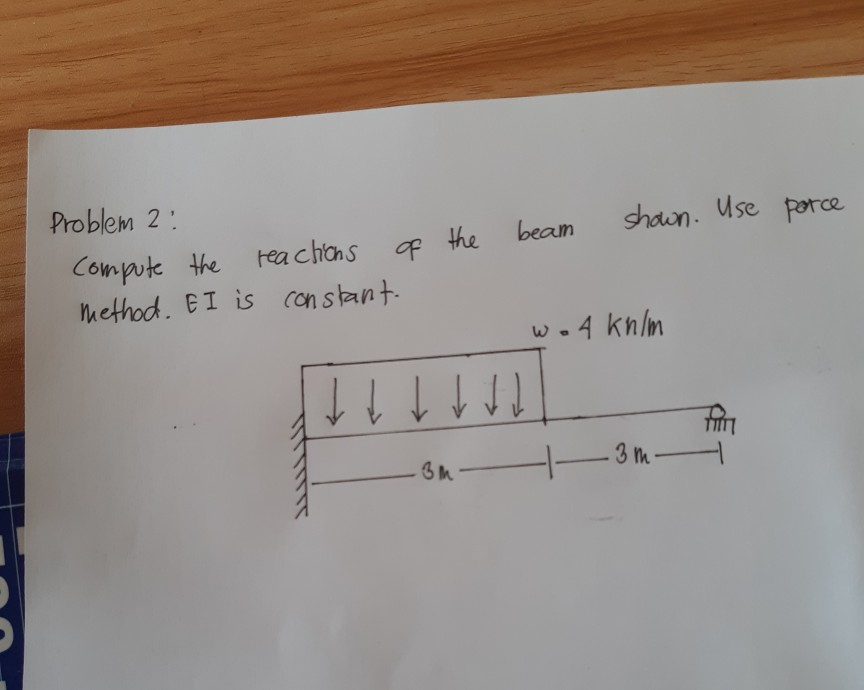 Problem 2:
Compute the reactions of the beam shown. Use force
method. EI is constant.
w = 4 kn/m
3m
3m